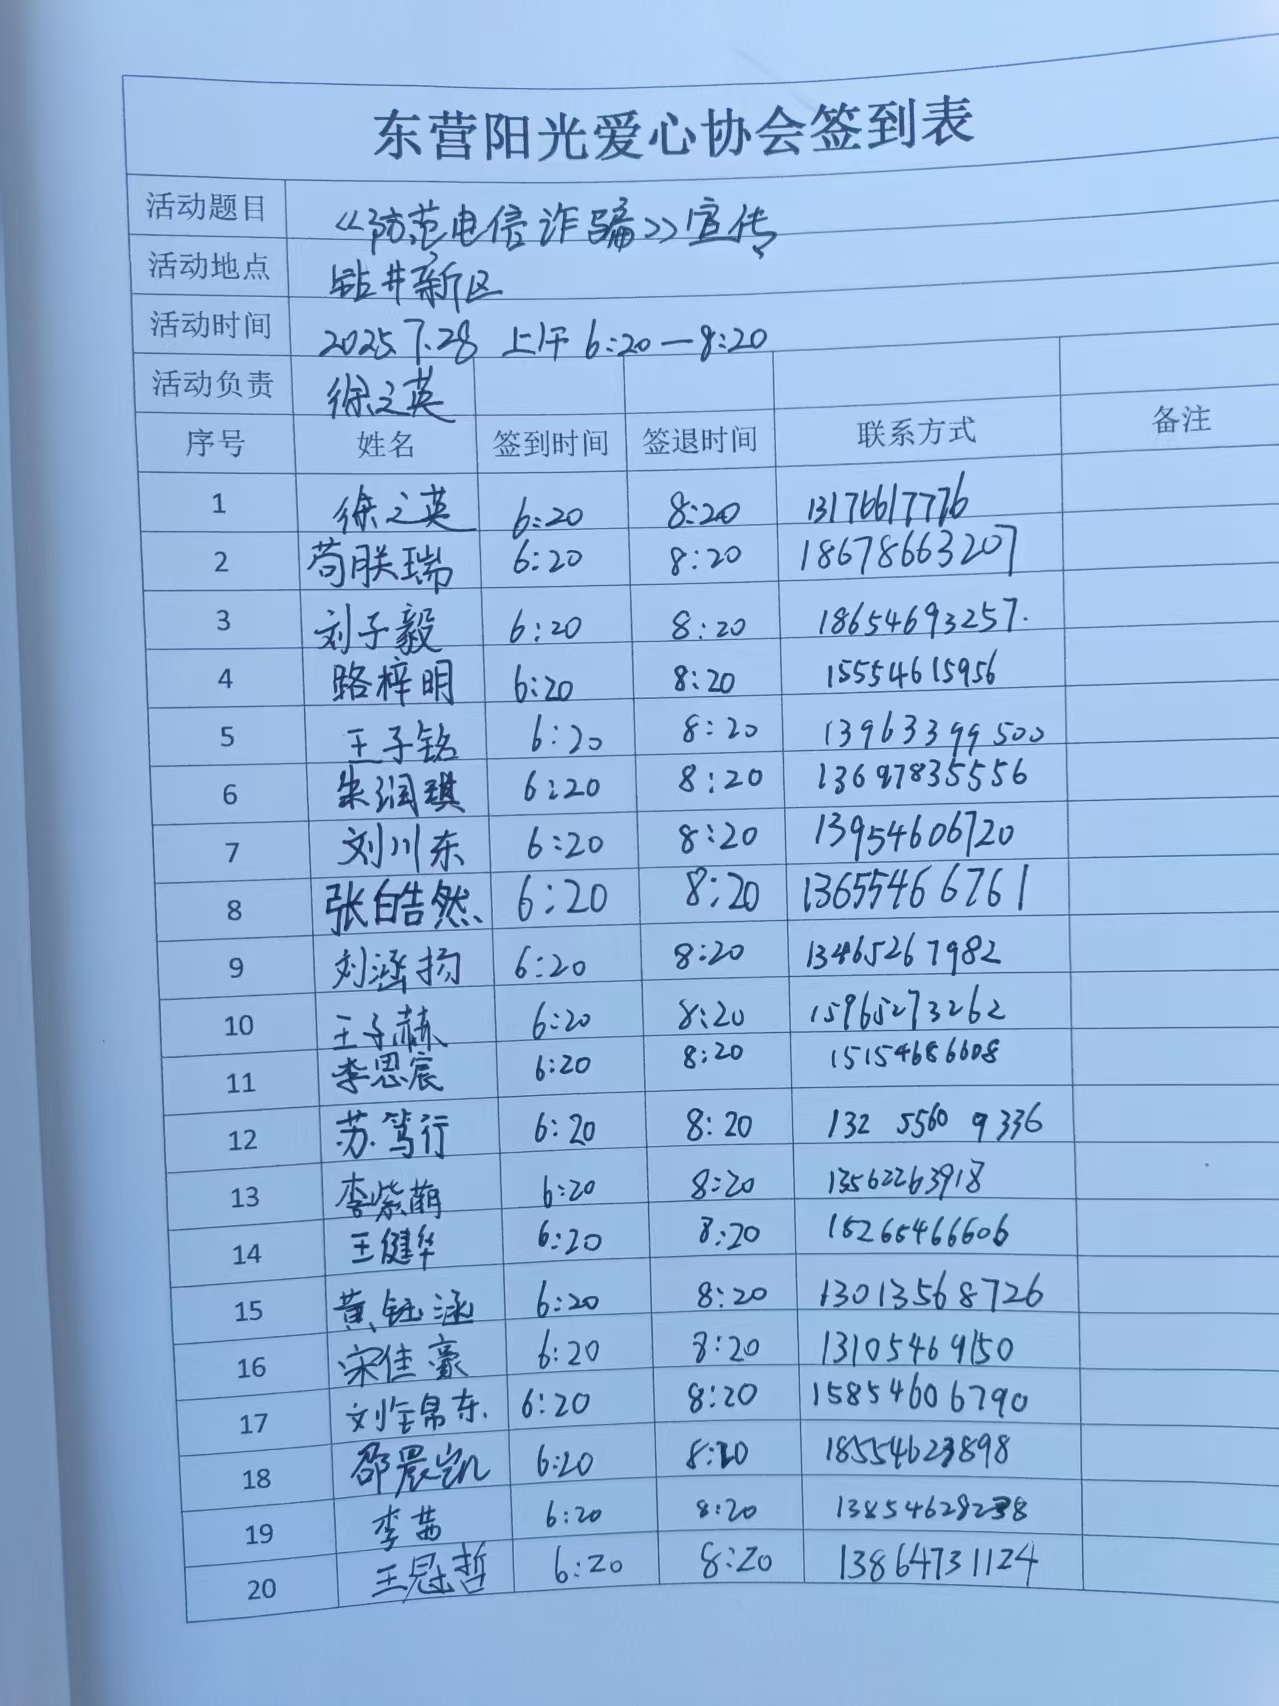 东营阳光爱心协会签到表
活动题目 《防范电信诈骗》宣传
活动地点 钻井新区
活动时间 2025.7.28 上午 6:20—8:20
活动负责 徐之英
序号 姓名 签到时间 签退时间 联系方式 备注
1 徐之英 6:20 8:20 13176617776
2 苟朕瑞 6:20 8:20 18678663207
3 刘子毅 6:20 8:20 18654693257.
4 路梓明 6:20 8:20 15554615956
5 王子铭 6:20 8:20 13963399500
6 朱润琪 6:20 8:20 13697835556
7 刘川东 6:20 8:20 13954606720
8 张皓然 6:20 8:20 13655466761
9 刘涵扬 6:20 8:20 13465267982
10 王子赫 6:20 8:20 15965273262
11 李思宸 6:20 8:20 15154686608
12 苏笃行 6:20 8:20 132 5560 9336
13 李紫萌 6:20 8:20 13562263918
14 王健华 6:20 8:20 15265466606
15 黄钰涵 6:20 8:20 13013568726
16 宋佳豪 6:20 8:20 13105469150
17 刘锦东 6:20 8:20 15854606790
18 邵晨凯 6:20 8:20 18554623898
19 李茜 6:20 8:20
20 王冠哲 6:20 8:20 13864731124